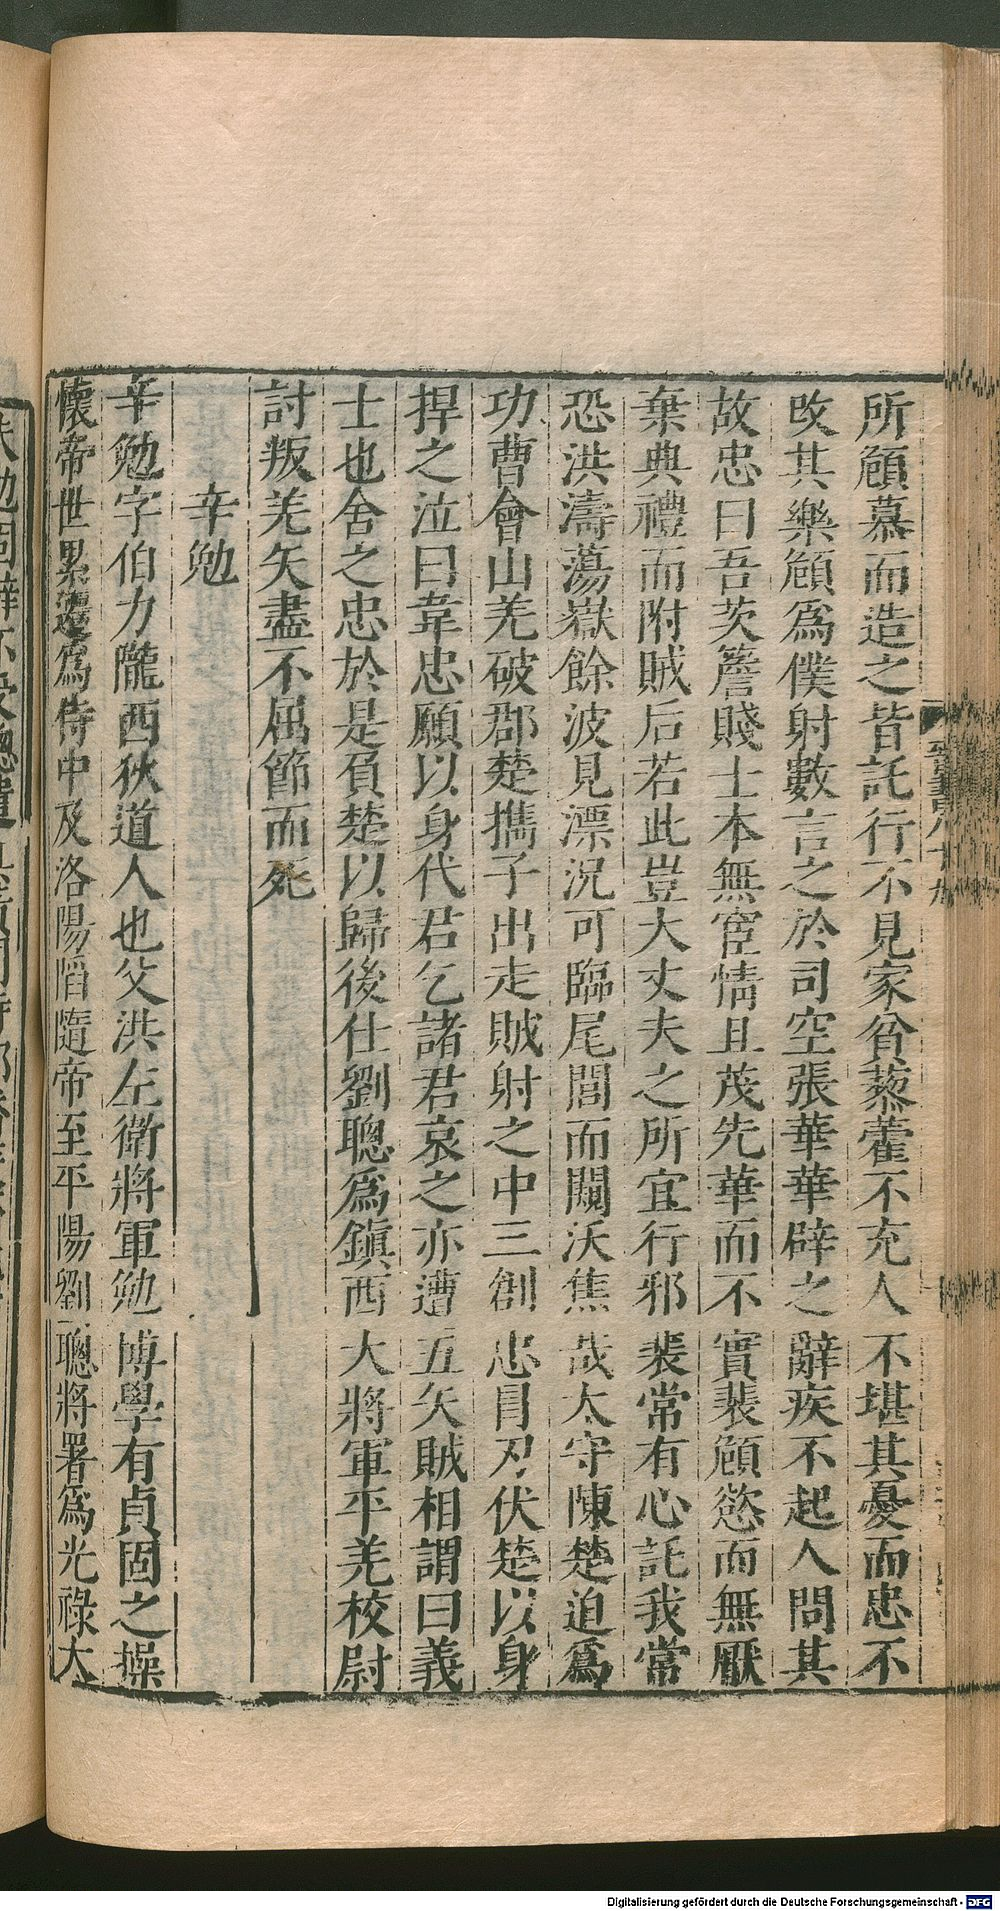 所頋慕而造之皆託行不見家貧藜藿不充人不堪其憂而忠不
改其樂頋爲僕射數言之於司空張華華辟之辭疾不起人問其
故忠曰吾茨簷賤士本無宦情且茂先華而不實裴頋慾而無厭
棄典禮而附賊后若此豈大丈夫之所宜行邪裴常有心託我常
恐洪濤蕩嶽餘波見漂況可臨尾閭而闚沃焦哉太守陳楚迫爲
功曹會山羌破郡楚携子出走賊射之中三創忠冒刃伏楚以身
捍之泣曰韋忠願以身代君乞諸君哀之亦遭五矢賊相謂曰義
士也舍之忠於是負楚以歸後仕劉聰爲鎮西大將軍平羌校尉
討叛羌矢盡不屈節而死
辛勉
辛勉字伯力隴西狄道人也父洪左衛將軍勉博學有貞固之操
懷帝世累遷爲侍中及洛陽陷隨帝至平陽劉聰將署爲光祿大
Digitalisierung gefördert durch die Deutsche Forschungsgemeinschaft - DFG